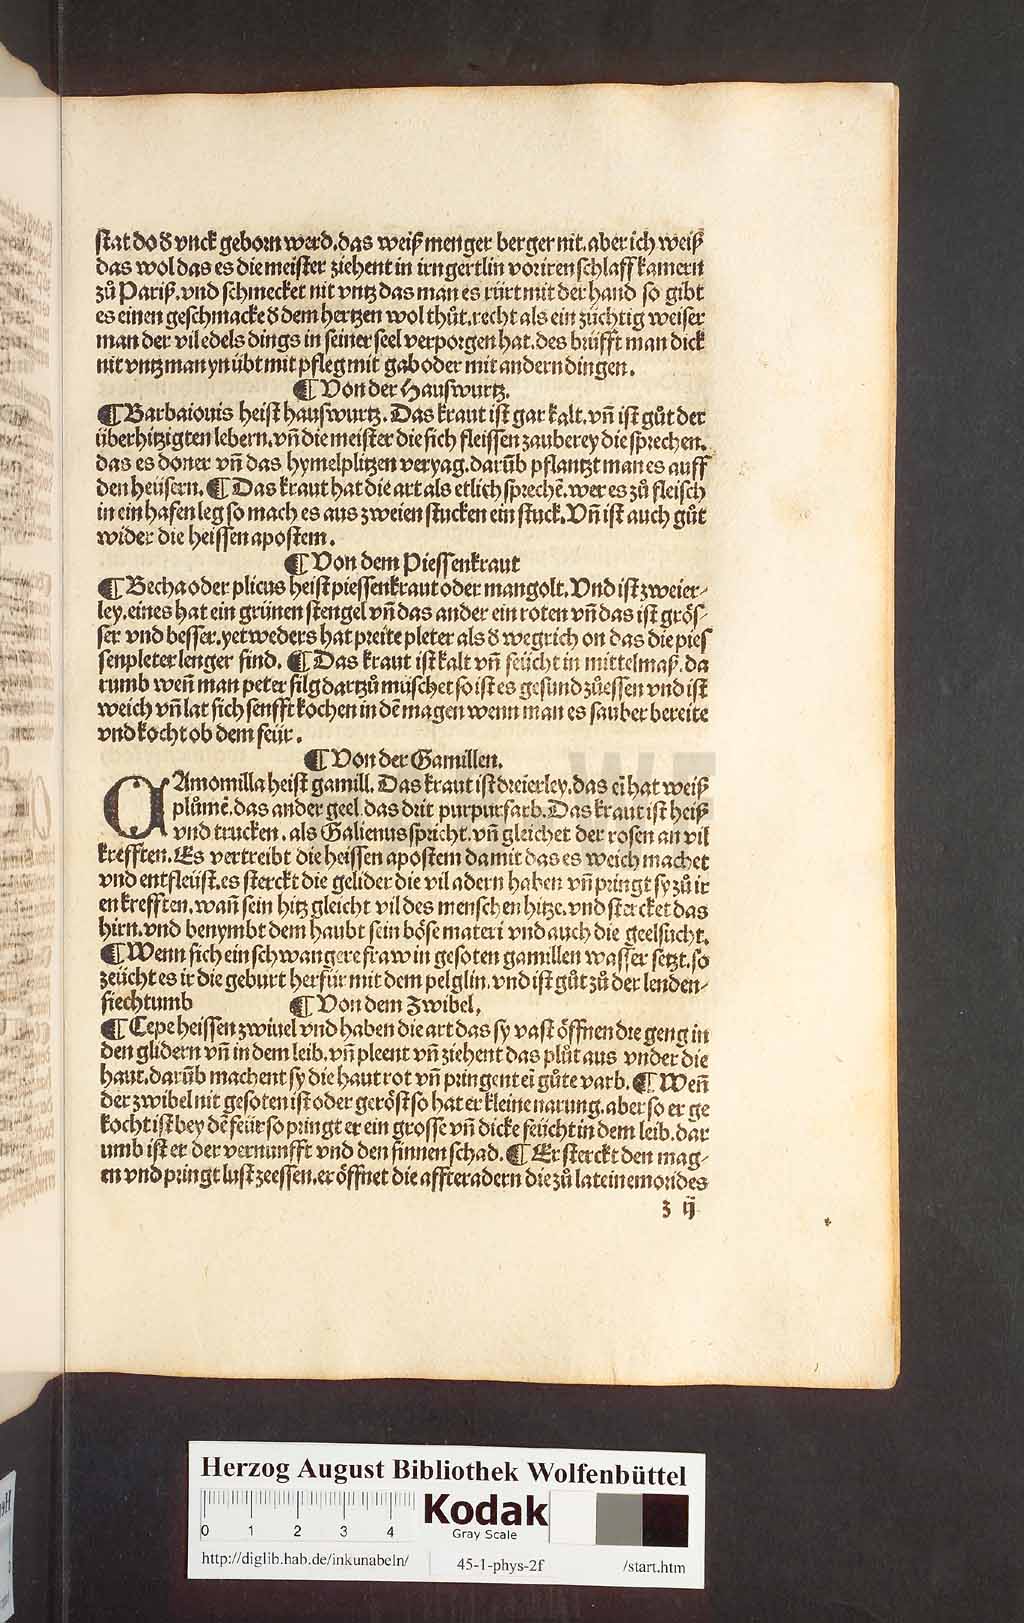 stat do d̕ vnck geborn werd. das weiß menger berger nit. aber ich weiß
das wol das es die meister ziehent in irn gertlin vor iren schlaff kamern
zů Pariß. vnd schmecket nit vntz das man es růrt mit der hand so gibt
es einen geschmack e d̕ dem hertzen wol thůt. recht als ein züchtig weiser
man der vil edels dings in seiner seel verporgen hat. des brüfft man dick
nit vntz man yn übt mit pfleg mit gab oder mit andern dingen.
¶ Von der Hauswurtz.
¶ Barbaiouis heist hauswurtz. Das kraut ist gar kalt. vñ ist gůt der
überhitzigten lebern. vñ die meister die sich fleissen zauberey die sprechen.
das es doner vñ das hymelplitzen veryag. darũb pflantzt man es auff
den heüsern. ¶ Das kraut hat die art als etlich sprechẽ. wer es zů fleisch
in ein hafen leg so mach es aus zweien stucken ein stuck. Vñ ist auch gůt
wider die heissen apostem.
¶ Von dem Piessenkraut
¶ Becha oder plicus heist piessenkraut oder mangolt. Vnd ist zweier-
ley. eines hat ein grünen stengel vñ das ander ein roten vñ das ist grös-
ser vnd besser. yetweders hat preite pleter als d̕ wegrich on das die pies
senpleter lenger sind. ¶ Das kraut ist kalt vñ feücht in mittelmaß. da
rumb weñ man petersilg dartzů muschet so ist es gesund zůessen vnd ist
weich vñ lat sich senfft kochen in dẽ magen wenn man es sauber bereite
vnd kocht ob dem feür.
¶ Von der Gamillen.
CAmomilla heist gamill. Das kraut ist dreierley. das eĩ hat weiß
plůmẽ. das ander geel. das drit purpurfarb. Das kraut ist heiß
vnd trucken. als Galienus spricht. vñ gleichet der rosen an vil
krefften. Es vertreibt die heissen apostem damit das es weich machet
vnd entfleüst. es sterckt die gelider die vil adern haben vñ pringt sy zů ir
en krefften. wañ sein hitz gleicht vil des menschen hitze. vnd stercket das
hirn. vnd benymbt dem haubt sein böse materi vnd auch die geelsucht.
¶ Wenn sich ein schwangere fraw in gesoten gamillen wasser setzt. so
zeücht es ir die geburt herfür mit dem pelglin. vnd ist gůt zů der lenden-
siechtumb ¶ Von dem Zwibel.
¶ Cepe heissen zwiuel vnd haben die art das sy vast öffnen die geng in
den glidern vñ in dem leib. vñ pleent vñ ziehent das plůt aus vnder die
haut. darũb machent sy die haut rot vñ pringent eĩ gůte varb. ¶ Weñ
der zwibel nit gesoten ist oder geröst so hat er kleine narung. aber so er ge
kocht ist bey dẽ feür so pringt er ein grosse vñ dicke feücht in dem leib. dar
umb ist er der vernunfft vnd den sinnen schad. ¶ Er sterckt den mag-
en vnd pringt lust zeessen. er öffnet die affteradern die zů latein emorides
z ij
Herzog August Bibliothek Wolfenbüttel
0 1 2 3 4
Kodak
Gray Scale
http://diglib.hab.de/inkunabeln/ 45-1-phys-2f /start.htm